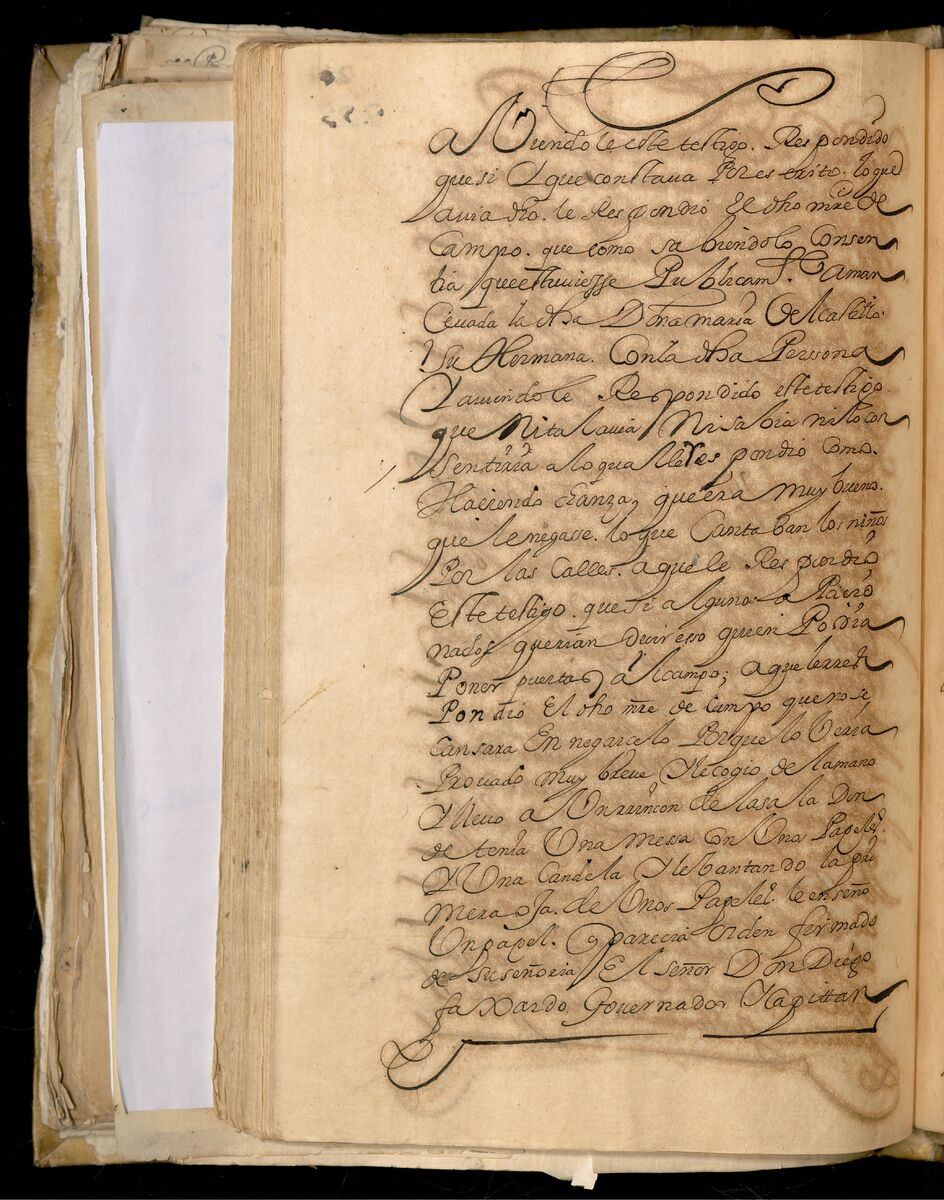 aViendole este testigo. Respondido
que si Y que constaua Por escrito. lo que
auia dho. le Respondio El dho mre de
Campo. que como sabiendolo Consen
tia que estuuiesse Publicamte Aman
Ceuada la dha Dona maria Del Castillo
Su Hermana. Con la dha Persona
Y auiendole Respondido este testigo
que Ni tal auia Ni sabia ni lo con
sentiria a lo qual le Respondio Como.
Haciendo chanza, que era muy bueno.
que le negasse. lo que Cantaban los niños
Por las Calles. a que le Respondio
Este testigo. que si algunos a Pacio
nados querian decir esso quien Podia
Poner puertas al campo; a que le rres
Pondio El dho mre de Campo que no se
Cansara En negarcelo Porque lo Veria
Prouado muy breve Y le cogio de la mano
Y lleuo a Un rrincon de la sala Don
de tenia Una messa con Unos Papeles.
Y Una Candela Y lebantando la pri
mera oja. de Unos Papeles. le enseño
Un papel. q parecia orden firmado
de su señoria El señor Don Diego
faxardo Gouernador Y Capittan